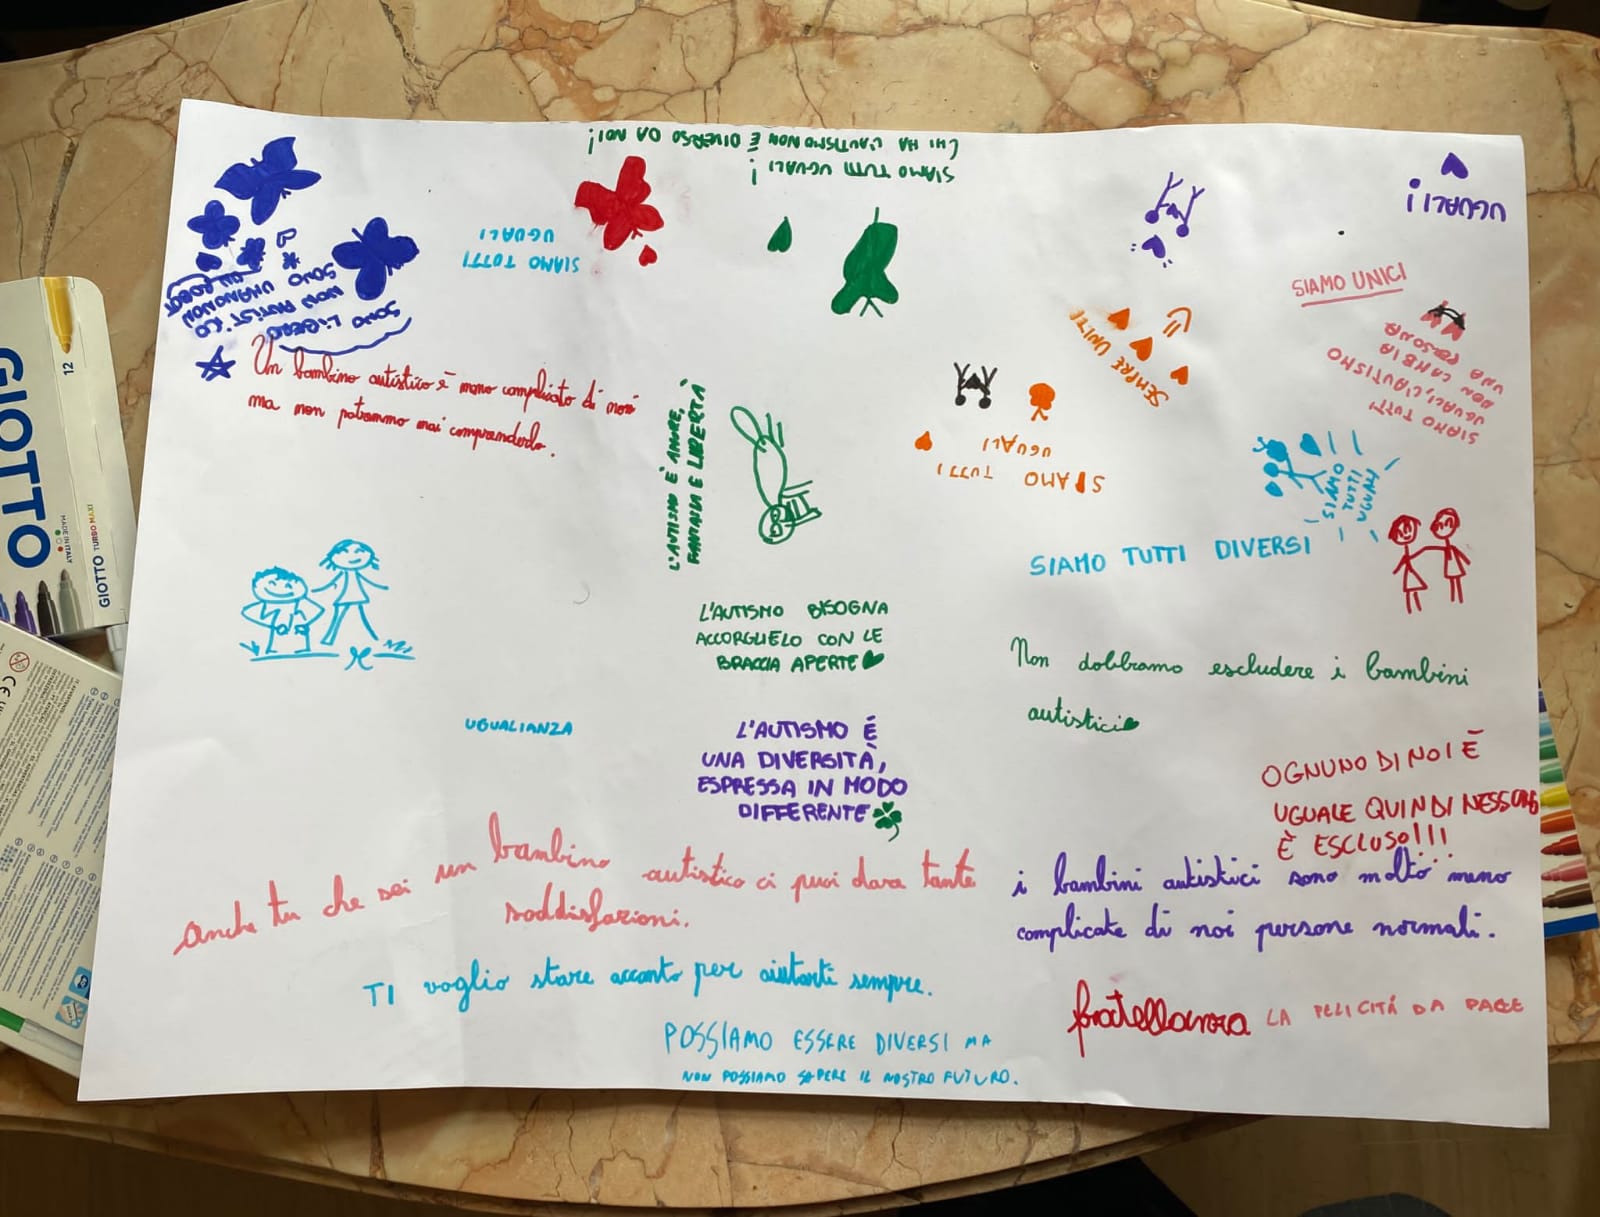 CHI HA L'AUTISMO NON È DIVERSO DA NOI!
SIAMO TUTTI UGUALI!
UGUALI!
SIAMO TUTTI
UGUALI
SONO LIBERO
NON AUTISTICO
SONO UMANO NON
UN ROBOT
SIAMO UNICI
SIAMO TUTTI
UGUALI, L'AUTISMO
NON CAMBIA
UNA PERSONA
SEMPRE UNITI
SIAMO TUTTI
UGUALI
Un bambino autistico è meno complicato di noi
ma non potremmo mai comprenderlo.
L'AUTISMO È AMORE,
FANTASIA E LIBERTÀ
SIAMO
TUTTI
UGUALI
SIAMO TUTTI DIVERSI
L'AUTISMO BISOGNA
ACCORGLIELO CON LE
BRACCIA APERTE
Non dobbiamo escludere i bambini
autistici
UGUALIANZA
L'AUTISMO É
UNA DIVERSITÀ,
ESPRESSA IN MODO
DIFFERENTE
OGNUNO DI NOI È
UGUALE QUINDI NESSUNO
È ESCLUSO!!!
anche tu che sei un bambino autistico ci puoi dara tante
soddisfazioni.
i bambini autistici sono molto... meno
complicate di noi persone normali.
TI voglio stare accanto per aiutarti sempre.
fratellanza LA FELICITÁ DA PACE
POSSIAMO ESSERE DIVERSI MA
NON POSSIAMO SAPERE IL NOSTRO FUTURO.
GIOTTO
12
MADE IN ITALY
GIOTTO TURBO MAXI